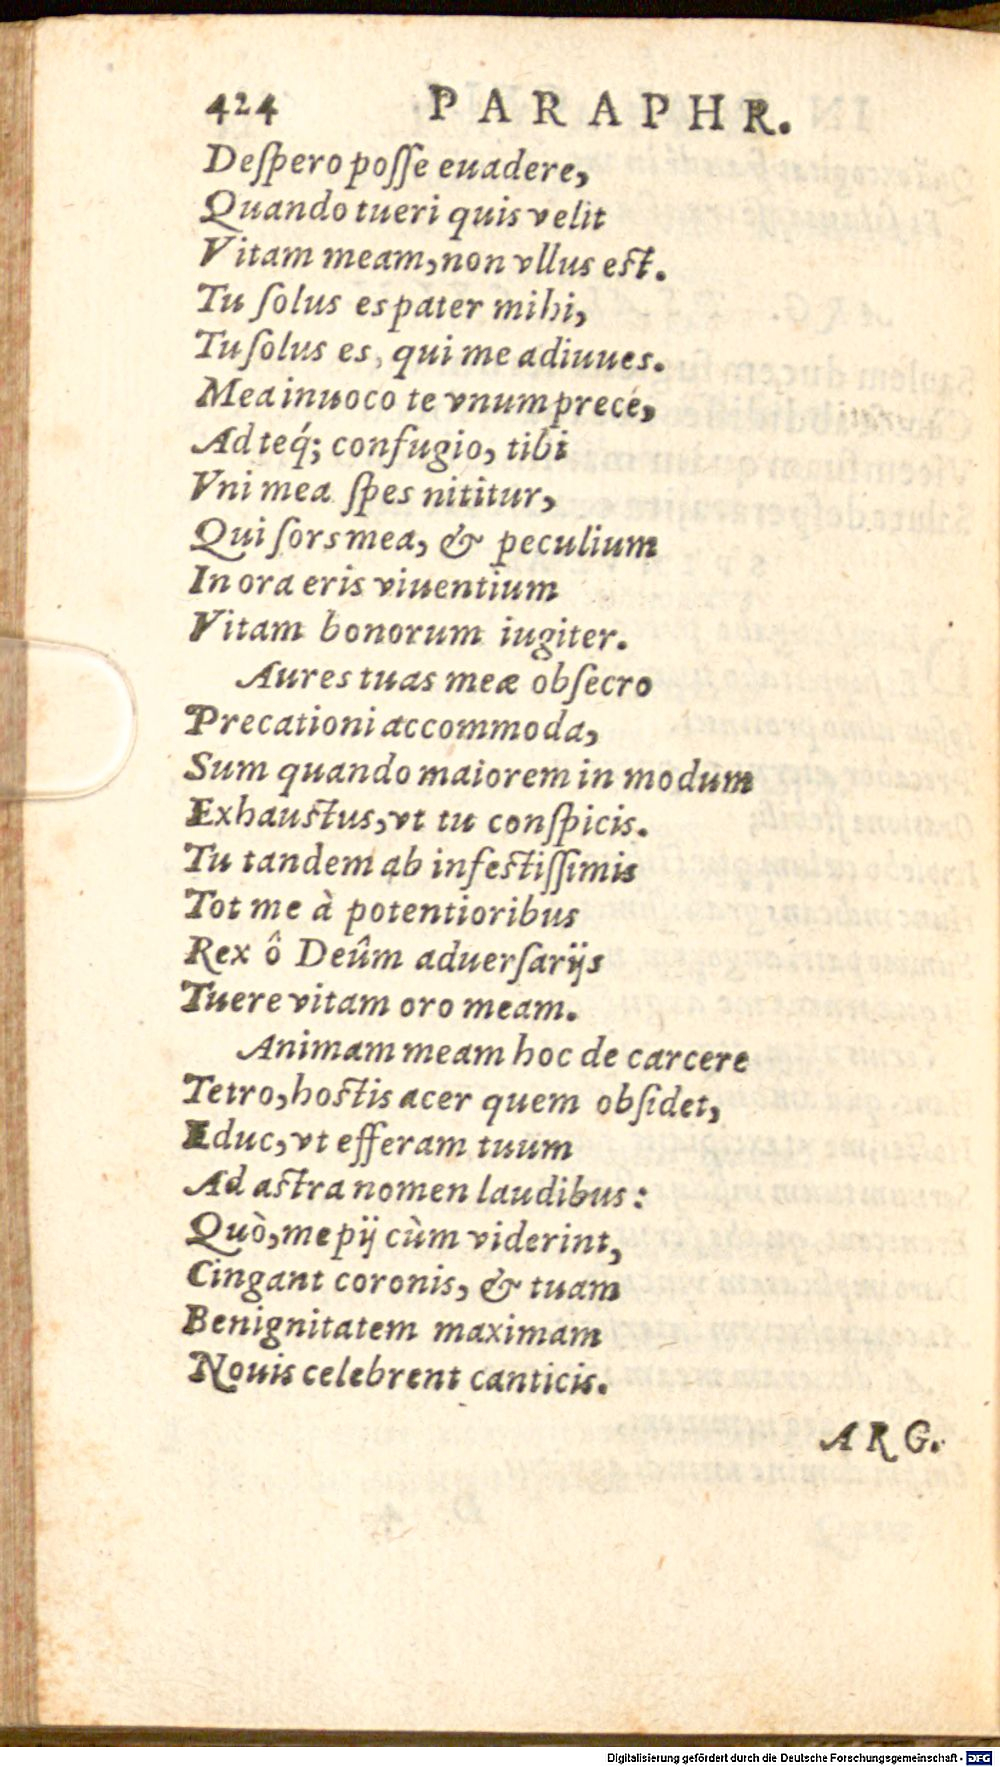 424 PARAPHR.
Deſpero poſſe euadere,
Quando tueri quis velit
Vitam meam, non vllus est.
Tu ſolus es pater mihi,
Tu ſolus es, qui me adiuues.
Mea inuoco te vnum prece,
Ad teq́; confugio, tibi
Vni mea ſpes nititur,
Qui ſors mea, & peculium
In ora eris viuentium
Vitam bonorum iugiter.
Aures tuas meæ obſecro
Precationi accommoda,
Sum quando maiorem in modum
Exhaustus, vt tu conſpicis.
Tu tandem ab infestiſſimis
Tot me à potentioribus
Rex ô Deûm aduerſarijs
Tuere vitam oro meam.
Animam meam hoc de carcere
Tetro, hostis acer quem obſidet,
Educ, vt efferam tuum
Ad astra nomen laudibus:
Quò, me pij cùm viderint,
Cingant coronis, & tuam
Benignitatem maximam
Nouis celebrent canticis.
ARG.
Digitalisierung gefördert durch die Deutsche Forschungsgemeinschaft - DFG